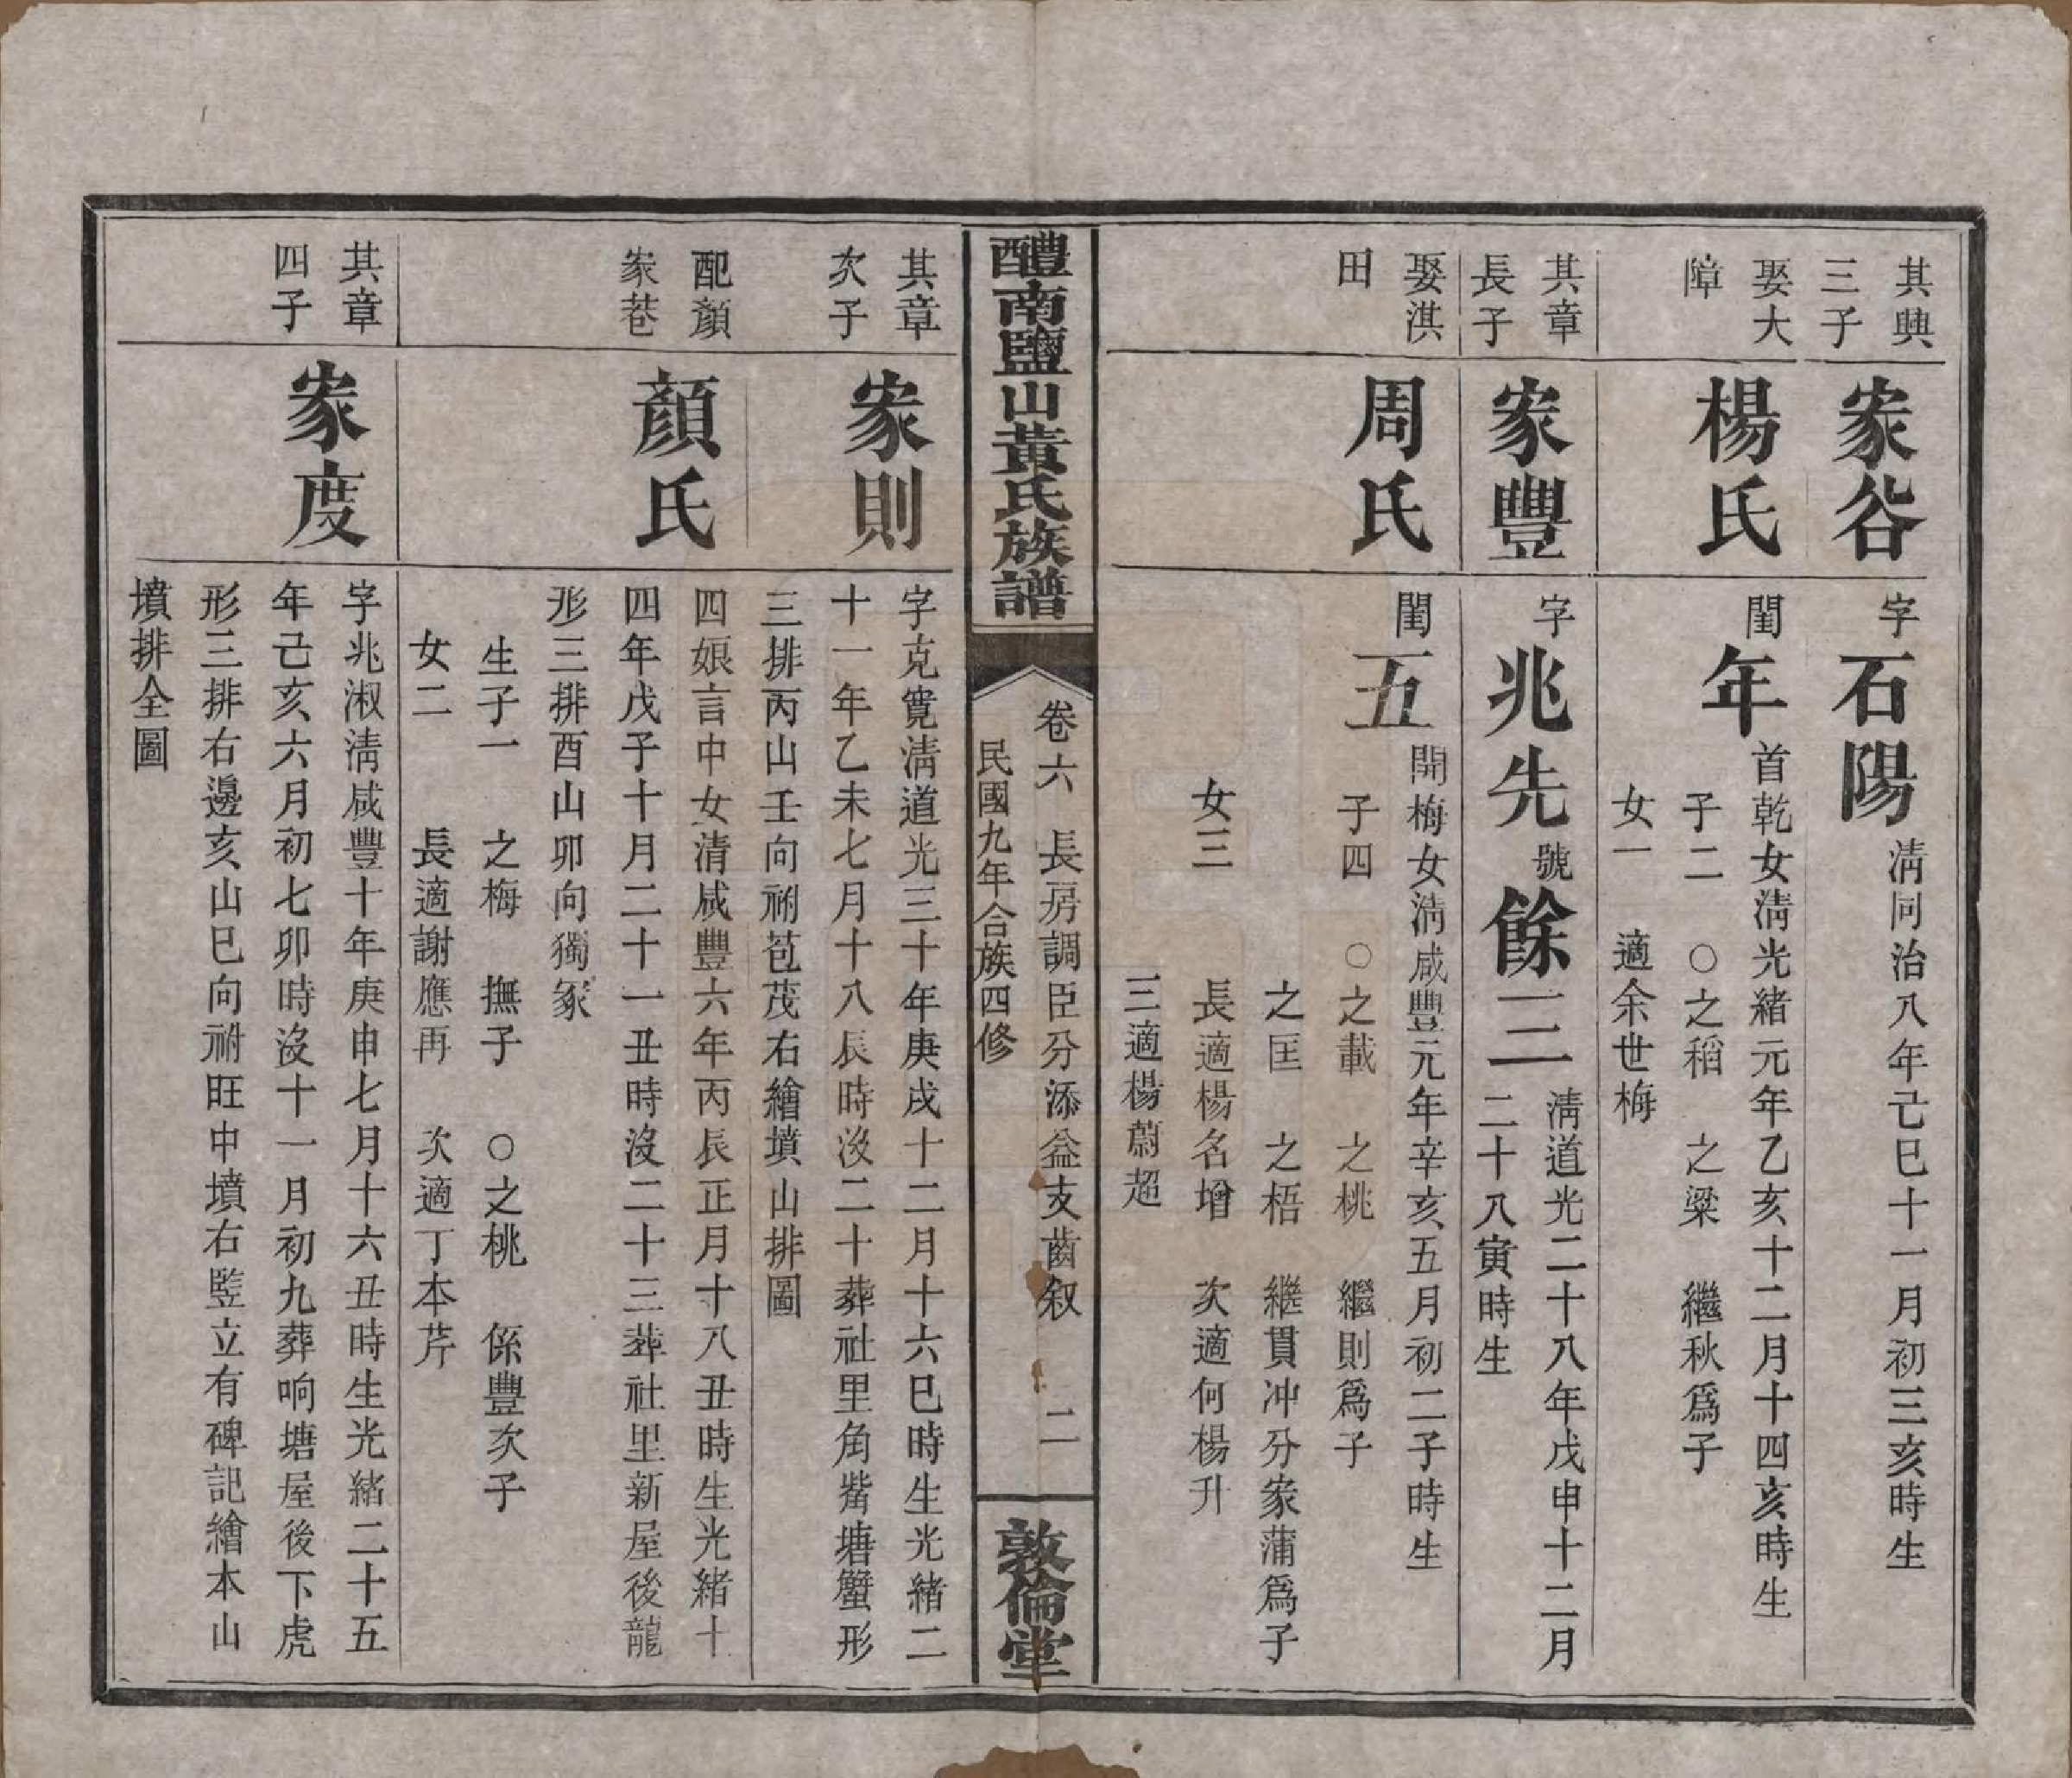 其興
三子
家谷
字石陽清同治八年己巳十一月初三亥時生
娶大
障
楊氏
閨年首乾女淸光緒元年乙亥十二月十四亥時生
子二　○之稻　之粱　繼秋爲子
女一　適余世梅
其章
長子
家豐
字兆先號餘三淸道光二十八年戊申十二月
二十八寅時生
娶淇
田
周氏
閨五開梅女淸咸豐元年辛亥五月初二子時生
子四　○之載　之桃　繼則爲子
之匡　之梧　繼貫冲分家蒲爲子
女三　長適楊名增　次適何楊升
三適楊蔚超
醴南鹽山黃氏族譜
卷六　長房調臣分添益支齒叙　二
民國九年合族四修
敦倫堂
其章
次子
家則
字克寬淸道光三十年庚戌十二月十六巳時生光緒二
十一年乙未七月十八辰時沒二十葬社里角觜塘蟹形
三排丙山壬向祔苞茂右繪墳山排圖
配顏
家巷
顏氏
四娘言中女清咸豐六年丙辰正月十八丑時生光緒十
四年戊子十月二十一丑時沒二十三葬社里新屋後龍
形三排酉山卯向獨冢
生子一　之梅　撫子　○之桃　係豐次子
女二　長適謝應再　次適丁本芹
其章
四子
家度
字兆淑淸咸豐十年庚申七月十六丑時生光緒二十五
年己亥六月初七卯時沒十一月初九葬响塘屋後下虎
形三排右邊亥山巳向祔旺中墳右豎立有碑記繪本山
墳排全圖